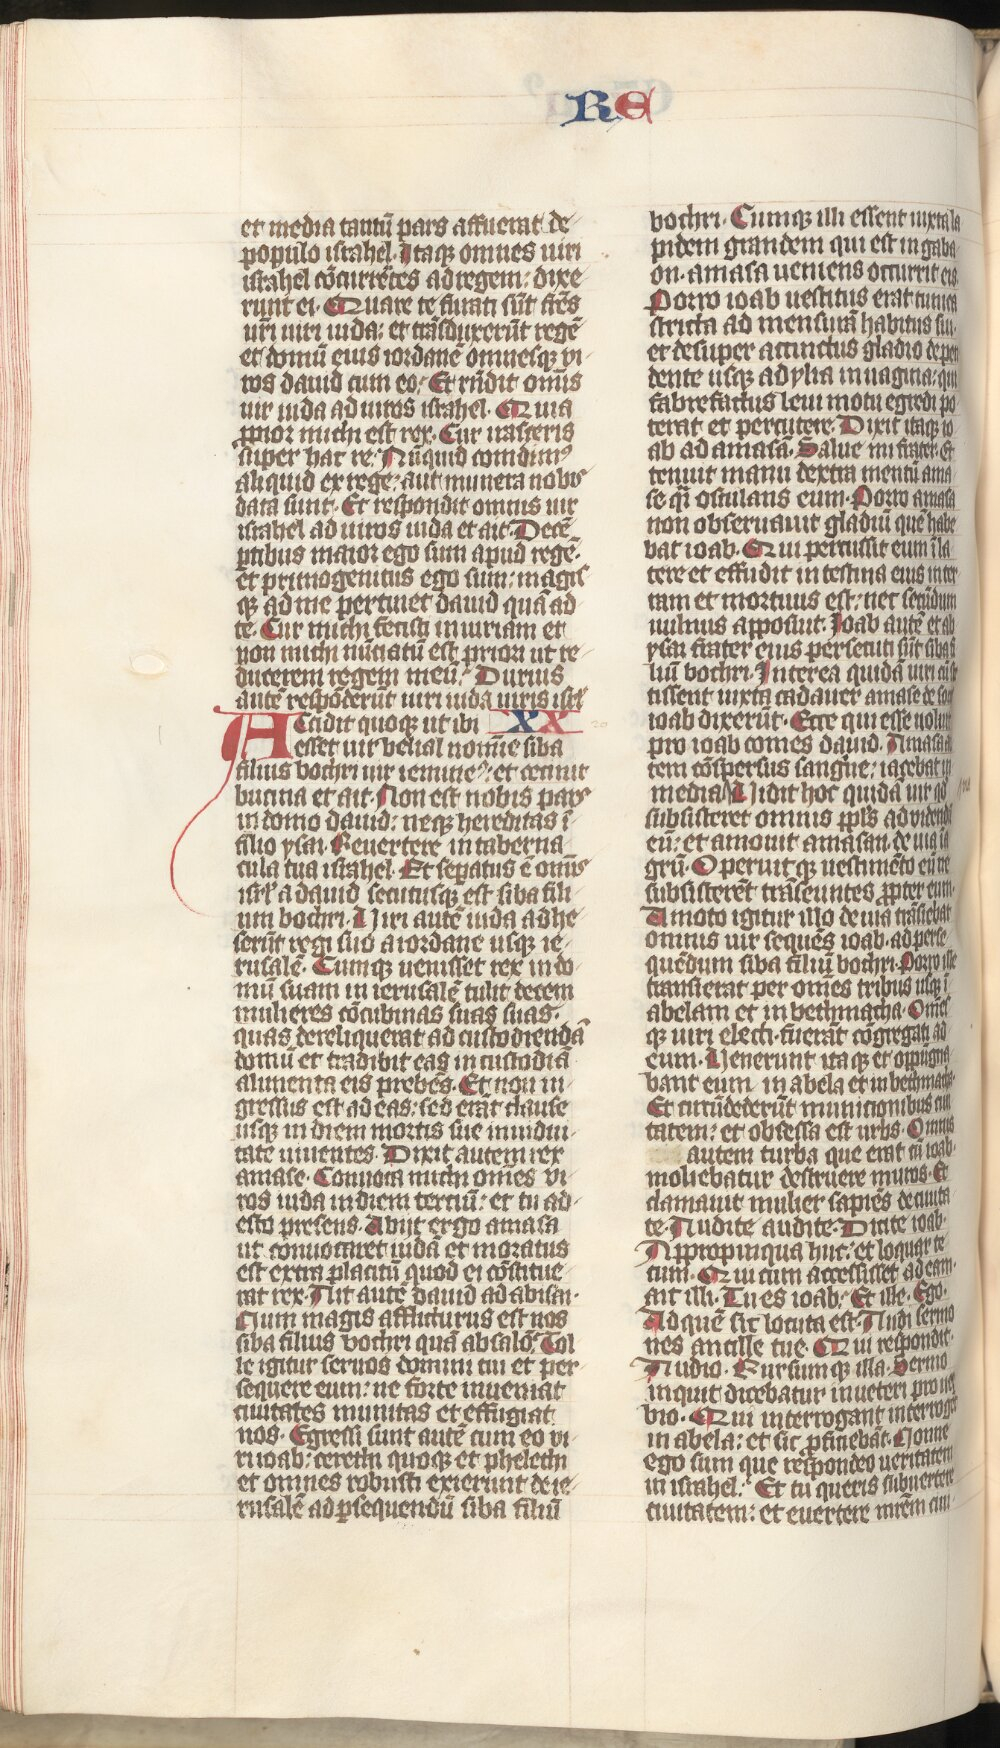 RE
et media tantū pars affuerat de-
populo israhel. Itaqꝫ omnes uiri
israhel cōcurrētes ad regem: dixe
runt ei. Quare te furati sūt fr̄es
ur̄i uiri iuda: et trāsduxerūt regē
et domū eius iordanē omnesqꝫ vi-
ros dauid cum eo. Et rn̄dit om̄is
uir iuda ad uiros israhel. Quia
ꝓpior michi est rex. Cur irasceris
super hac re. Nūquid comedimꝰ
aliquid ex rege: aut munera nobis
data sunt. Et respondit omnis uir
israhel ad uiros iuda et ait. Decē
ꝑtibus maior ego sum apud regē.
et primogenitus ego sum: magis
qꝫ ad me pertinet dauid quā ad
te. Cur michi fecisti iniuriam et
non michi nūciatū est priori ut re-
ducerem regem meū. Durius
autē respōderūt uiri iuda uiris isrl̄
Accidit quoqꝫ ut ibi XX
esset uir belial nomine siba
filius bochri uir iemineꝰ: et cecinit
bucina et ait. Non est nobis pars
in domo dauid: neqꝫ hereditas ī
filio ysai. Reuertere in taberna
cula tua israhel. Et sepatus ē om̄is
isrl̄ a dauid secutusqꝫ est siba fili
um bochri. Uiri autē iuda adhe
serūt regi suo a iordane usqꝫ ie-
rusalē. Cumqꝫ uenisset rex in do-
mū suam in ierusalē tulit decem
mulieres cōcubinas suas suas.
quas dereliquerat ad custodiendā
domū et tradidit eas in custodiā
alimenta eis prebēs. Et non in-
gressus est ad eas: sed erāt clause
usqꝫ in diem mortis sue in uidui-
tate uiuentes. Dixit autem rex
amase. Conuoca michi om̄es vi-
ros iuda in diem tertiū: et tu ad-
esto presens. Abiit ergo amasa
ut conuocaret iudā et moratus
est extra placitū quod ei cōstitue-
rat rex. Ait autē dauid ad abisai.
Num magis afflicturus est nos
siba filius bochri quā absalō. Tol
le igitur seruos domini tui et per
sequere eum: ne forte inueniat
ciuitates munitas et effugiat
nos. Egressi sunt autē cum eo vi-
ri ioab: cerethi quoqꝫ et phelethi
et omnes robusti exierunt de ie-
rusalē ad ꝑsequendū siba filiū
bochri. Cumqꝫ illi essent iuxta la
pidem grandem qui est in gaba
on. amasa ueniens occurrit eis.
Porro ioab uestitus erat tunica
stricta ad mensurā habitus sui.
et desuper accinctus gladio depen
dente usqꝫ ad ylia in uagina: qui
fabrefactus leui motu egredi po
terat et percutere. Dixit itaqꝫ io
ab ad amasā. Salue mi frater. Et
tenuit manu dextra mentū ama
se q̄i osculans eum. Porro amasa
non obseruauit gladiū quē habe
bat ioab. Qui percussit eum ī la
tere et effudit intestina eius in ter
ram et mortuus est: nec secūdum
uulnus apposuit. Ioab autē et ab
ysai frater eius persecuti sūt siba fi
liū bochri. Interea quidā uiri cū ste
tissent iuxta cadauer amase de soc
ioab dixerūt. Ecce qui esse uoluit
pro ioab comes dauid. Amasa au
tem cōspersus sangīne: iacebat in
media Uidit hoc quidā uir qd̄
subsisteret omnis ppl̄s ad videndū
eū: et amouit amasan de uia ī a
grū. Operuitqꝫ uestimēto eū ne
subsisterēt trāseuntes ꝓpter eum.
Amoto igitur illo de uia trāsiebat
omnis uir sequēs ioab. ad perse-
quēdum siba filiū bochri. Porro ille
transierat per om̄es tribus usqꝫ ī
abelam et in bethmacha. Om̄es
qꝫ uiri electi. fuerāt cōgregati ad
eum. Uenerunt itaqꝫ et oppūgna-
bant eum in abela et in bethmacha.
Et circūdederūt municionibus ciui
tatem: et obsessa est urbs. Omnis
autem turba que erat cū ioab.
moliebatur destruere muros. Et
clamauit mulier sapiēs de ciuita
te. Audite audite. Dicite ioab.
Appropinqua huc: et loquar te
cum. Qui cum accessisset ad eam.
ait illi. Tu es ioab. Et ille. Ego.
Ad quē sic locuta est. Audi sermo
nes ancille tue. Qui respondit.
Audio. Rursumqꝫ illa. Sermo
inquit dicebatur in ueteri prouer
bio. Qui interrogant interrogent
in abela: et sic ꝓficiebāt. Nonne
ego sum que respondeo ueritatem
in israhel. Et tu queris subuertere
ciuitatem: et euertere mr̄em ciui-